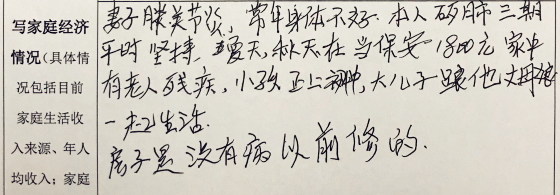 写家庭经济
情况（具体情
况包括目前
家庭生活收
入来源、年人
均收入；家庭
妻子膝关节炎，常年身体不好．本人矽肺三期
平时坚持，夏天，秋天在当保安 1800元 家中
有老人残疾，小孩正上初中，大儿子跟他丈母娘
一起生活．
房子是没有病以前修的．